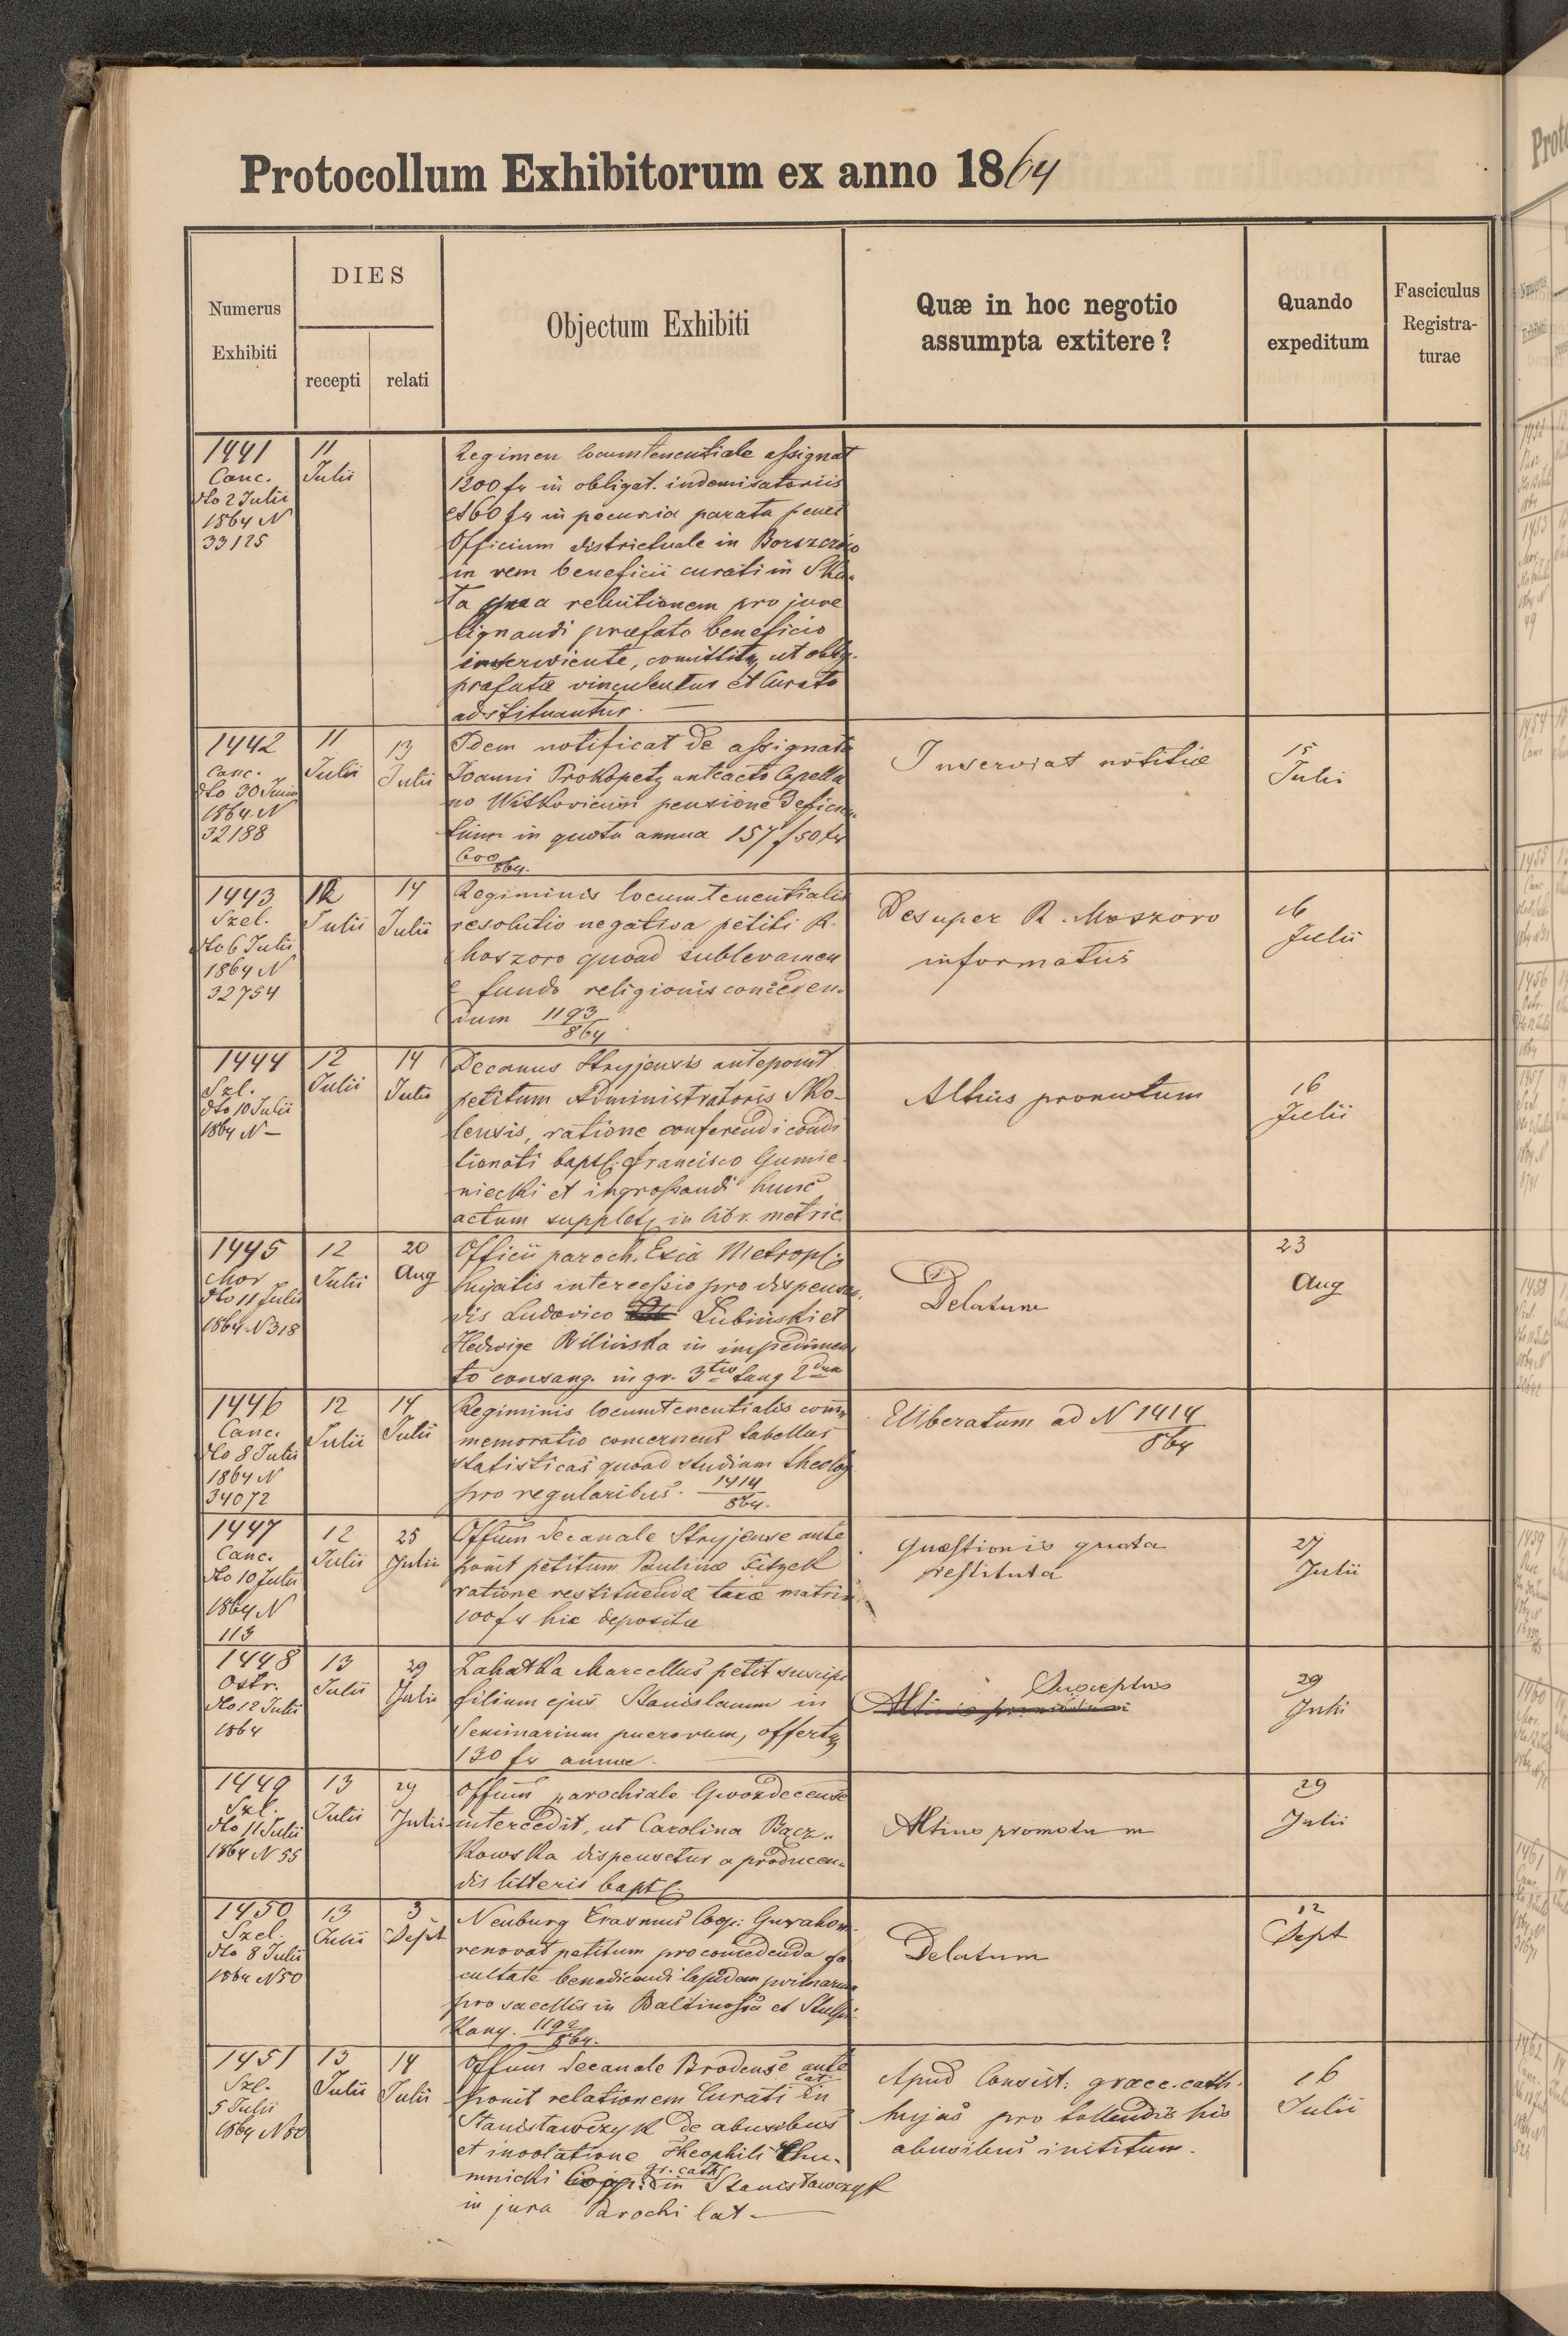 Protocollum Exhibitorum ex anno 1864
Numerus
Exhibiti
DIES
recepti
relati
Objectum Exhibiti
Quæ in hoc negotio
assumpta extitere?
Quando
expeditum
Fasciculus
Registra-
turae
1441
Canc.
dto 2 Julii
1864 N
33125
11
Julii
Regimen locumtenentiale assignat
1200 fr in obligat. indemisatoriis
et 60 fr in pecunia parata penes
Officium districtuale in Borszczów
in rem beneficii curati in Ska-
ła qua relutionem pro jure
lignandi præfato beneficio
inserviente, comittitq ut oblig.
præfatæ vinculentur et Curato
adstituantur.
1442
Canc.
dto 30 Junii
1864 N
32188
11
Julii
13
Julii
Idem notificat de assignata
Joanni Prokopetz anteacto Capella
no Witkoviensi pensione deficien
tium in quota annua 157 f 50 fr
600/864.
Inserviat notitiæ
15
Julii
1443
Szel.
dto 6 Julii
1864 N
32754
12
Julii
14
Julii
Regiminis locumtenentialis
resolutio negativa petiti R.
Moszoro quoad sublevamen
e fundo religionis conceden-
dum 1193/864
Desuper R. Moszoro
informatus
16
Julii
1444
Szl.
dto 10 Julii
1864 N —
12
Julii
14
Julii
Decanus Stryjensis anteponit
petitum Administratoris Sko-
lensis, ratione conferendi condi
tionati bapts. Francisco Gumie
niecki et ingrossandi hunc
actum suppletq in libr. metric.
Altius promotum
16
Julii
1445
Mor
dto 11 Julii
1864 N 318
12
Julii
20
Aug
Officii paroch. Ecia Metropl.
hujatis intercessio pro dispensan-
dis Ludovico Lubinski et
Hedwige Bilinska in impedimen
to consang. in gr. 3tio tang 2dum
Delatum
23
Aug
1446
Canc.
dto 8 Julii
1864 N
34072
12
Julii
14
Julii
Regiminis locumtenentialis com
memoratio concernens tabellas
statisticas quoad studium theolog
pro regularibus. 1414/864.
Eliberatum ad N 1414/864
1447
Canc.
dto 10 Julii
1864 N
113
12
Julii
25
Julii
Offum decanale Stryjense ante
ponit petitum Paulinæ Fitzek
ratione restituendæ taxæ matrim
100 fr hic depositæ
Quæstionis quota
restituta
27
Julii
1448
Ostr.
dto 12 Julii
1864
13
Julii
29
Julii
Zahatka Marcellus petit suscipi
filium ejus Stanislaum in
Seminarium puerorum, offertq
130 fr annue.
Susceptus
Altius promotum
29
Julii
1449
Szl.
dto 11 Julii
1864 N 55
13
Julii
29
Julii
Offum parochiale Gwozdecense
intercedit, ut Carolina Bacz-
kowska dispensetur a producen-
dis litteris bapts.
Altius promotum
29
Julii
1450
Szel.
dto 8 Julii
1864 N 50
13
Julii
3
Sept
Neuburg Erasmus Coop: Gurahom.
renovat petitum pro concedenda fa
cultate benedicendi lapidem primarium
pro sacellis in Baltinossa et Stulpi
kany. 1192/864.
Delatum
12
Sept
1451
Szl.
5 Julii
1864 N 80
13
Julii
14
Julii
Offum decanale Brodense ante
ponit relationem Curati lat in
Stanisławczyk de abusibus
et involatione Theophili Chu-
mnicki Coop: gr. cath. in Stanisławczyk
in jura Parochi lat —
Apud Consist: græc. cath.
hujas pro tollendis his
abusibus institum.
16
Julii